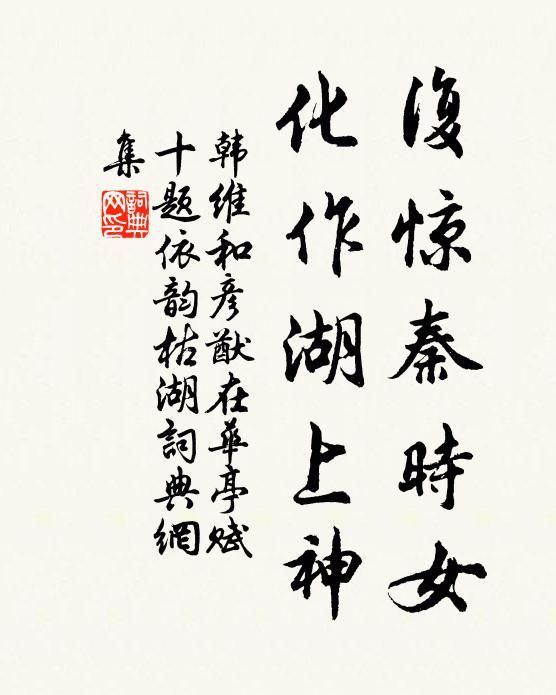 復惊秦時女
化作湖上神
韩维和彦猷在華亭赋
十题依韵枯湖詞典網
集
詞典
网印